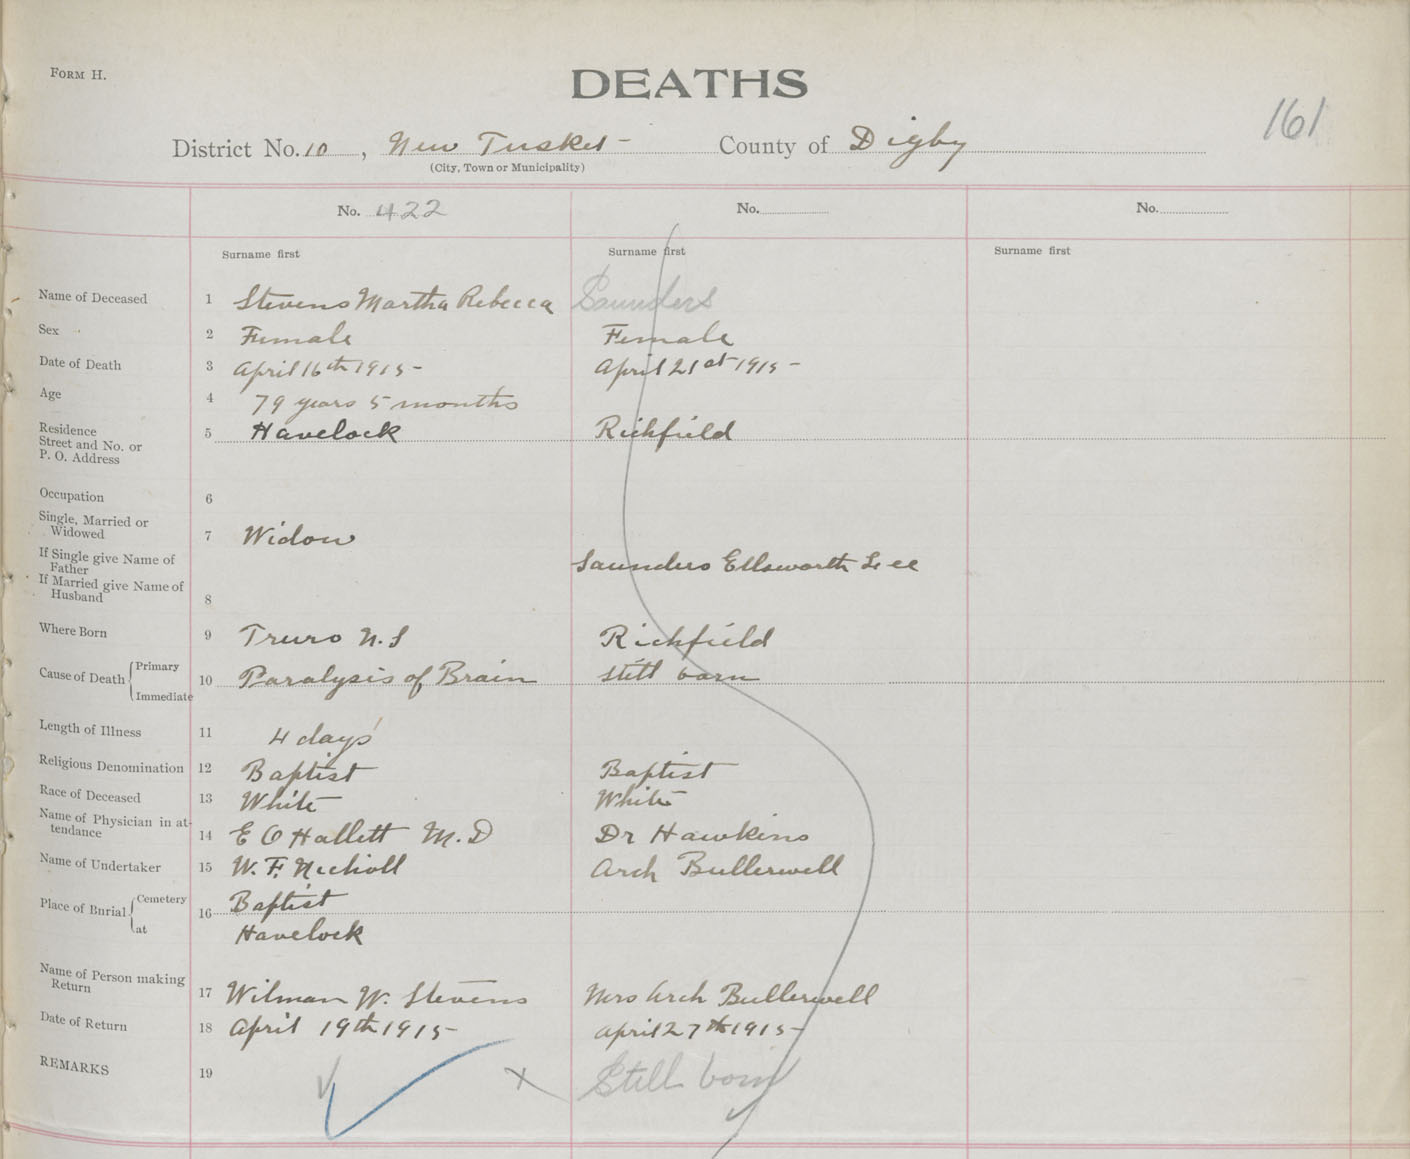 FORM H.
DEATHS
161
District No. 10, New Tusket - County of Digby
(City, Town or Municipality)
No. 422 No. No.
Surname first Surname first Surname first
Name of Deceased 1 Stevens Martha Rebecca Saunders
Sex 2 Female Female
Date of Death 3 April 16th 1915- April 21st 1915-
Age 4 79 years 5 months
Residence
Street and No. or
P. O. Address 5 Havelock Richfield
Occupation 6
Single, Married or
Widowed 7 Widow
If Single give Name of
Father Saunders Ellsworth Lee
If Married give Name of
Husband 8
Where Born 9 Truro N.S Richfield
Cause of Death Primary
Immediate 10 Paralysis of Brain Still born
Length of Illness 11 4 days
Religious Denomination 12 Baptist Baptist
Race of Deceased 13 White White
Name of Physician in at-
tendance 14 E O Hallett M.D Dr Hawkins
Name of Undertaker 15 W. F. Nicholl Arch Bullerwell
Place of Burial Cemetery
at 16 Baptist
Havelock
Name of Person making
Return 17 Wilman W. Stevens Mrs Arch Bullerwell
Date of Return 18 April 19th 1915- April 27th 1915-
REMARKS 19 Still born